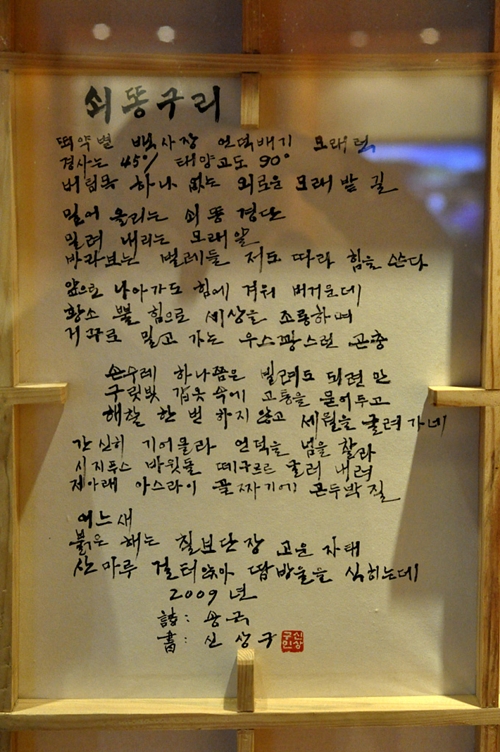 쇠똥구리
땡약볕 백사장 언덕배기 모래턱,
경사는 45% 태양고도 90°
버팀목 하나 없는 외로운 모래밭 길
밀어 올리는 쇠똥 경단
밀려 내리는 모래알
바라보는 벌레들 저도 따라 힘을 쓴다
앞으로 나아가도 힘에 겨워 버거운데
황소 뿔 힘으로 세상을 조롱하며
거꾸로 밀고 가는 우스꽝스런 곤충
손수레 하나쯤은 빌려도 되련만
구릿빛 갑옷 속에 고통을 묻어두고
해찰 한 번 하지 않고 세월을 굴려 가네
간신히 기어올라 언덕을 넘을 찰라
시지푸스 바윗돌 떼구르르 굴러 내려
저아래 아스라이 골짜기에 곤두박질
어느새
붉은 해는 칠보단장 고운 자태
산마루 걸터앉아 땀방울을 식히는데
2009년
詩:
書: 신상구